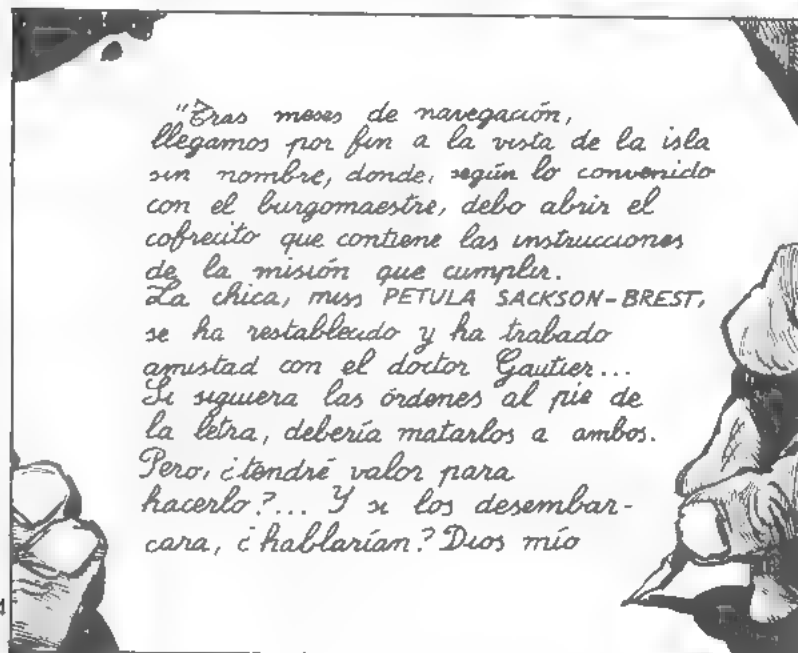 "Tras meses de navegación,
llegamos por fin a la vista de la isla
sin nombre, donde, según lo convenido
con el burgomaestre, debo abrir el
cofrecito que contiene las instrucciones
de la misión que cumplir.
La chica, miss PETULA SACKSON-BREST,
se ha restablecido y ha trabado
amistad con el doctor Gautier...
Si siguiera las órdenes al pie de
la letra, debería matarlos a ambos.
Pero, ¿tendré valor para
hacerlo?... Y si los desembar-
cara, ¿hablarían? Dios mío